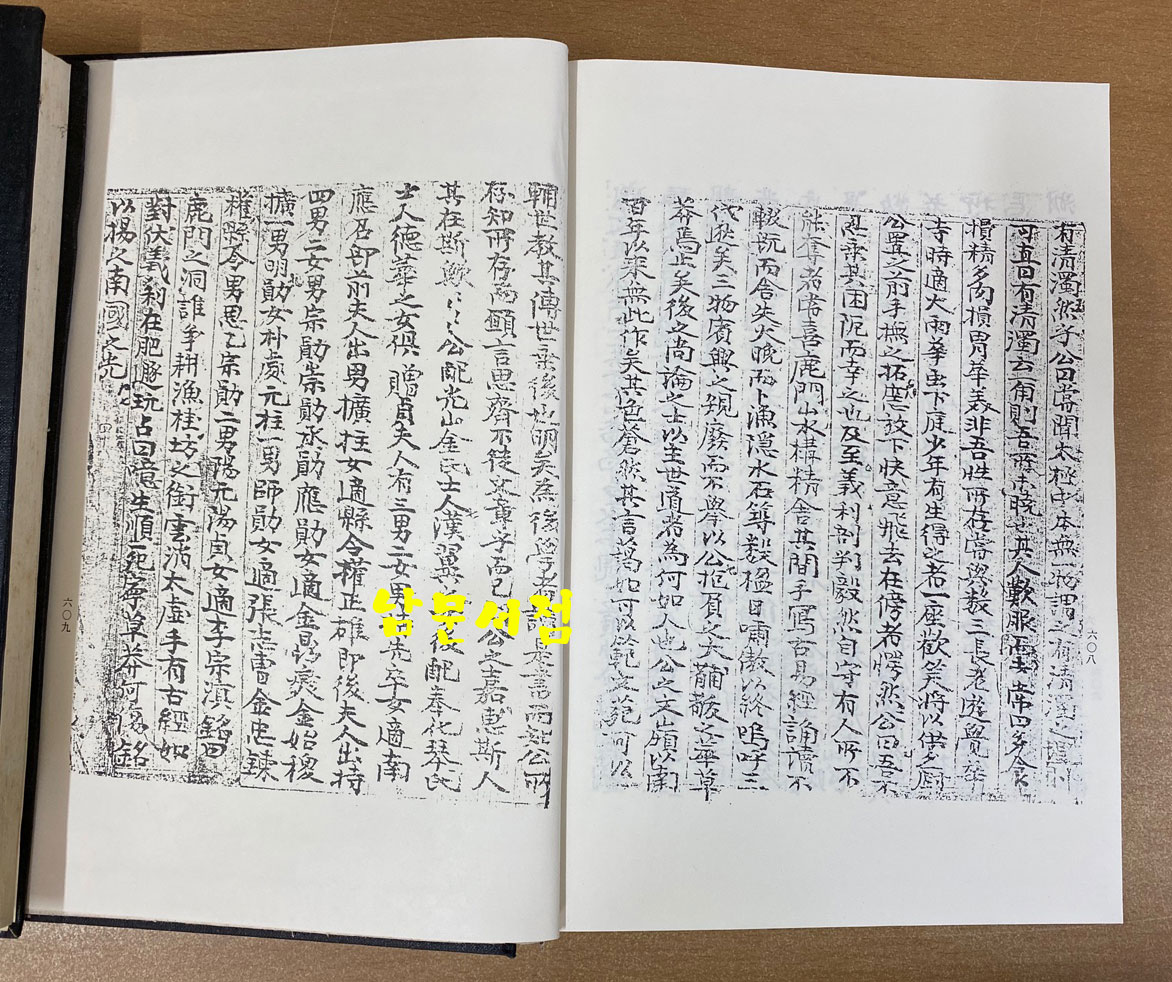 有清濁然乎公曰嘗聞太極中本無一物謂之有清濁之
可直曰有清濁云爾則吾所未曉其人歎服
損精多肉損胃華美非吾性所存嘗與數三長老遊覺華
寺時適大雨羣虫下庭少年有生得之者一座歡笑將以供夕廚
公置之前手撫之放下快意飛去在傍者愕然公曰吾不
忍乘其困阨而幸之也及至義利剖判毅然自守有人所不
能奪者常喜鹿門山水構精舍其間手寫古易經誦讀不
輟既而舍失火晚而卜漁隱水石築數楹日嘯傲以終嗚呼三
代邈矣三物賓興之規廢而不擧以公抱負之大黼黻之華草
莽焉止矣後之尚論之士以主世道者爲何如人也公之文頗以南
百年以來無此作矣其色蒼然其言謁如可以範可以
六〇八
輔世敎其傳世垂後也明矣爲後學者讀是書而知公所
存知所存而願言思齊不徒文尊予而已公之嘉惠斯人
其在斯歟公配光山金氏士人漢翼女後配奉化琴氏
士人德華之女俱贈貞夫人有三男二女男早卒女適南
應召部前夫人出男擴柱女適縣令權正雄即後夫人出持
四男二女男宗勛崇勛丞勛應勛女適金金始㮨
擴一男明勛女朴處元柱一男師勛女適張志金忠鍊
權縣令男思乙宗勛二男陽元湯貞女適李宗滇銘曰
鹿門之洞誰爭耕漁桂坊之銜雲消太虛手有古經如
對伏羲剝在肥遯玩占曰億生順死寧草莽何銘
以揚之南國之光
六〇九
남문서점